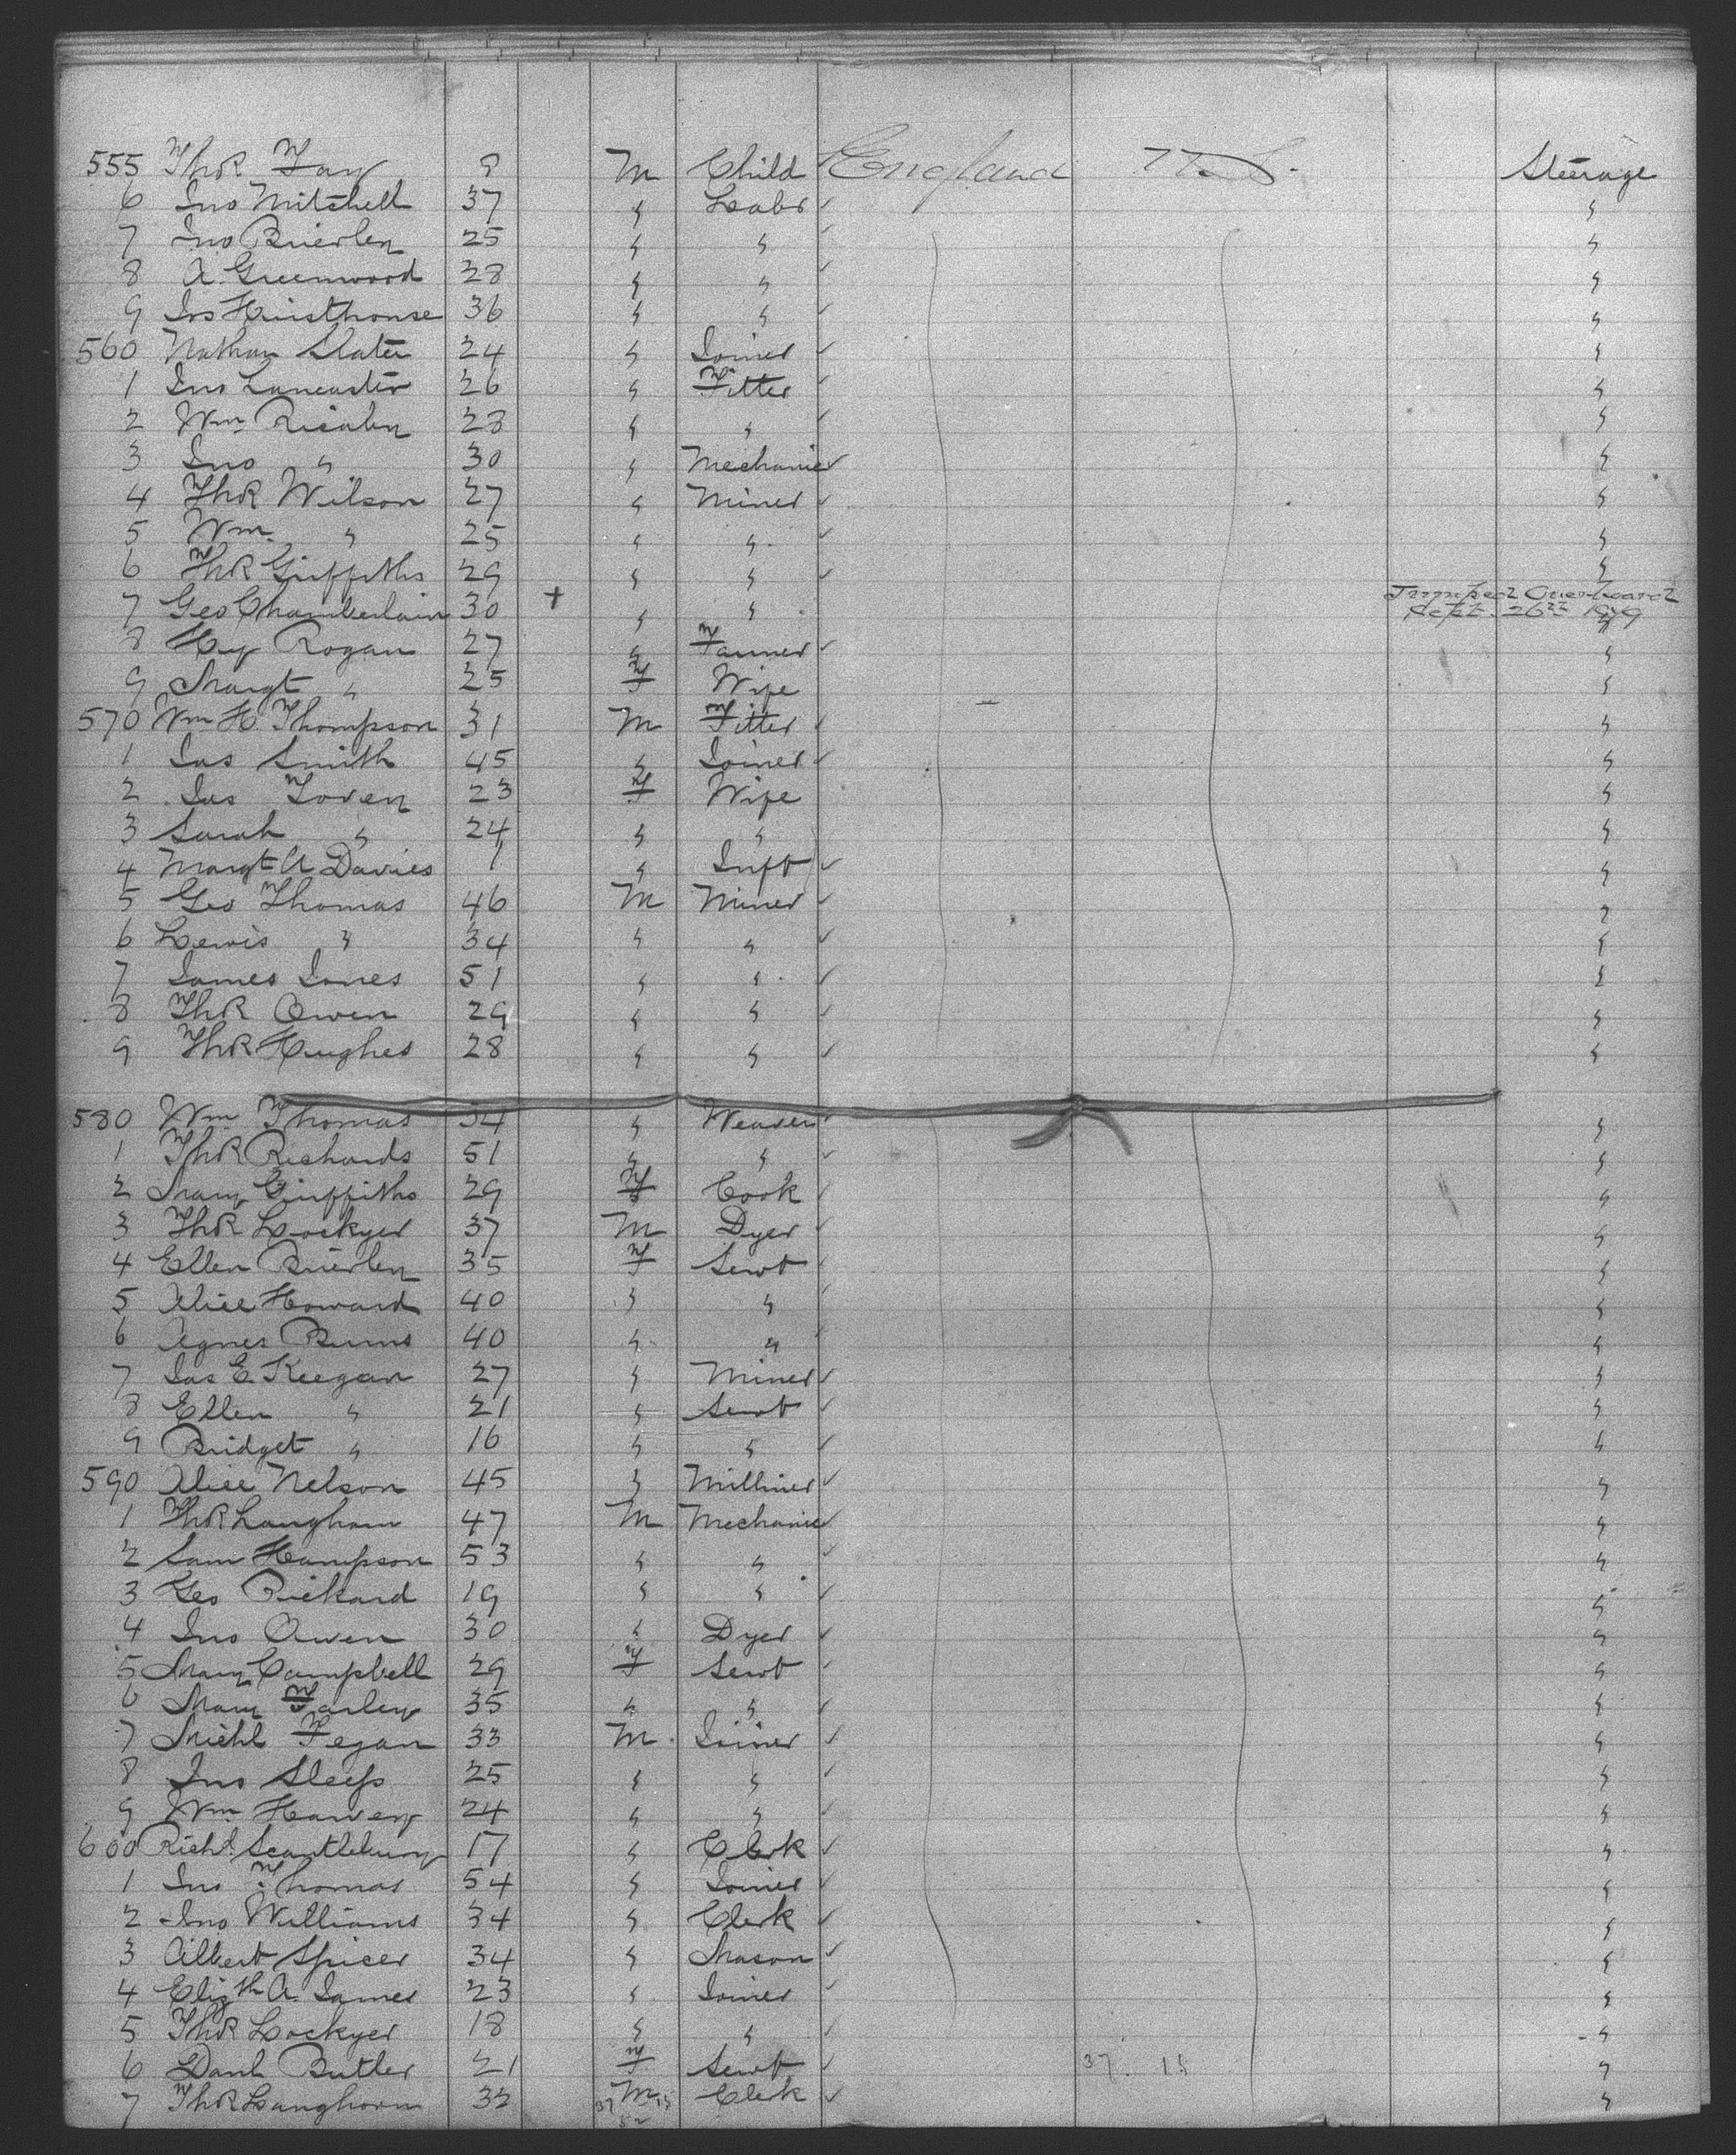 555 Thos Fay 8 M Child England U.S. Steerage
6 Jno Mitchell 37 " Labr "
7 Jno Brierley 25 " " "
8 A. Greenwood 28 " " "
9 Jos Hirsthouse 36 " " "
560 Nathan Slater 24 " Joiner "
1 Jno Lancaster 26 " Fitter "
2 Wm 28 " " "
3 Jno " 30 " Mechanic "
4 Thos Wilson 27 " Miner "
5 Wm " 25 " " "
6 Thos Griffiths 29 " " "
7 Geo Chamberlain 30 + " " Jumped Overboard
Sept. 26th 1879 "
8 Hy Rogan 27 " Farmer "
9 Margt " 25 F Wife "
570 Wm H. Thompson 31 M Fitter "
1 Jas Smith 45 " Joiner "
2 Jas 23 F Wife "
3 Sarah " 24 " " "
4 Margt A Davies 1 " Inft "
5 Geo Thomas 46 M Miner "
6 Lewis " 34 " " "
7 James Jones 51 " " "
8 Thos Owen 29 " " "
9 Thos Hughes 28 " " "
580 Wm Thomas 54 " Weaver "
1 Thos Richards 51 " " "
2 Mary Griffiths 29 F Cook "
3 Thos Lockyer 37 M Dyer "
4 Ellen Brierley 35 F Servt "
5 Alice Howard 40 " " "
6 Agnes Burns 40 " " "
7 Jas E. Keegan 27 " Miner "
8 Ellen " 21 " Servt "
9 Bridget " 16 " " "
590 Alice Nelson 45 " Milliner "
1 Thos Langham 47 M Mechanic "
2 Sam Hampson 53 " " "
3 Geo Rickard 19 " " "
4 Jno Owen 30 " Dyer "
5 Mary Campbell 29 F Servt "
6 Mary Farley 35 " " "
7 Michl Fegan 33 M Joiner "
8 Jno Sleep 25 " " "
9 Wm Harvey 24 " " "
600 Richd. Scantlebury 17 " Clerk "
1 Jno Thomas 54 " Joiner "
2 Jno Williams 34 " Clerk "
3 Albert Spicer 34 " Mason "
4 Elizth A. James 23 " Joiner "
5 Thos Lockyer 18 " " "
6 Danl Butler 21 F Servt 37 15 "
7 Thos Langhorn 32 M Clerk "
37 15
52